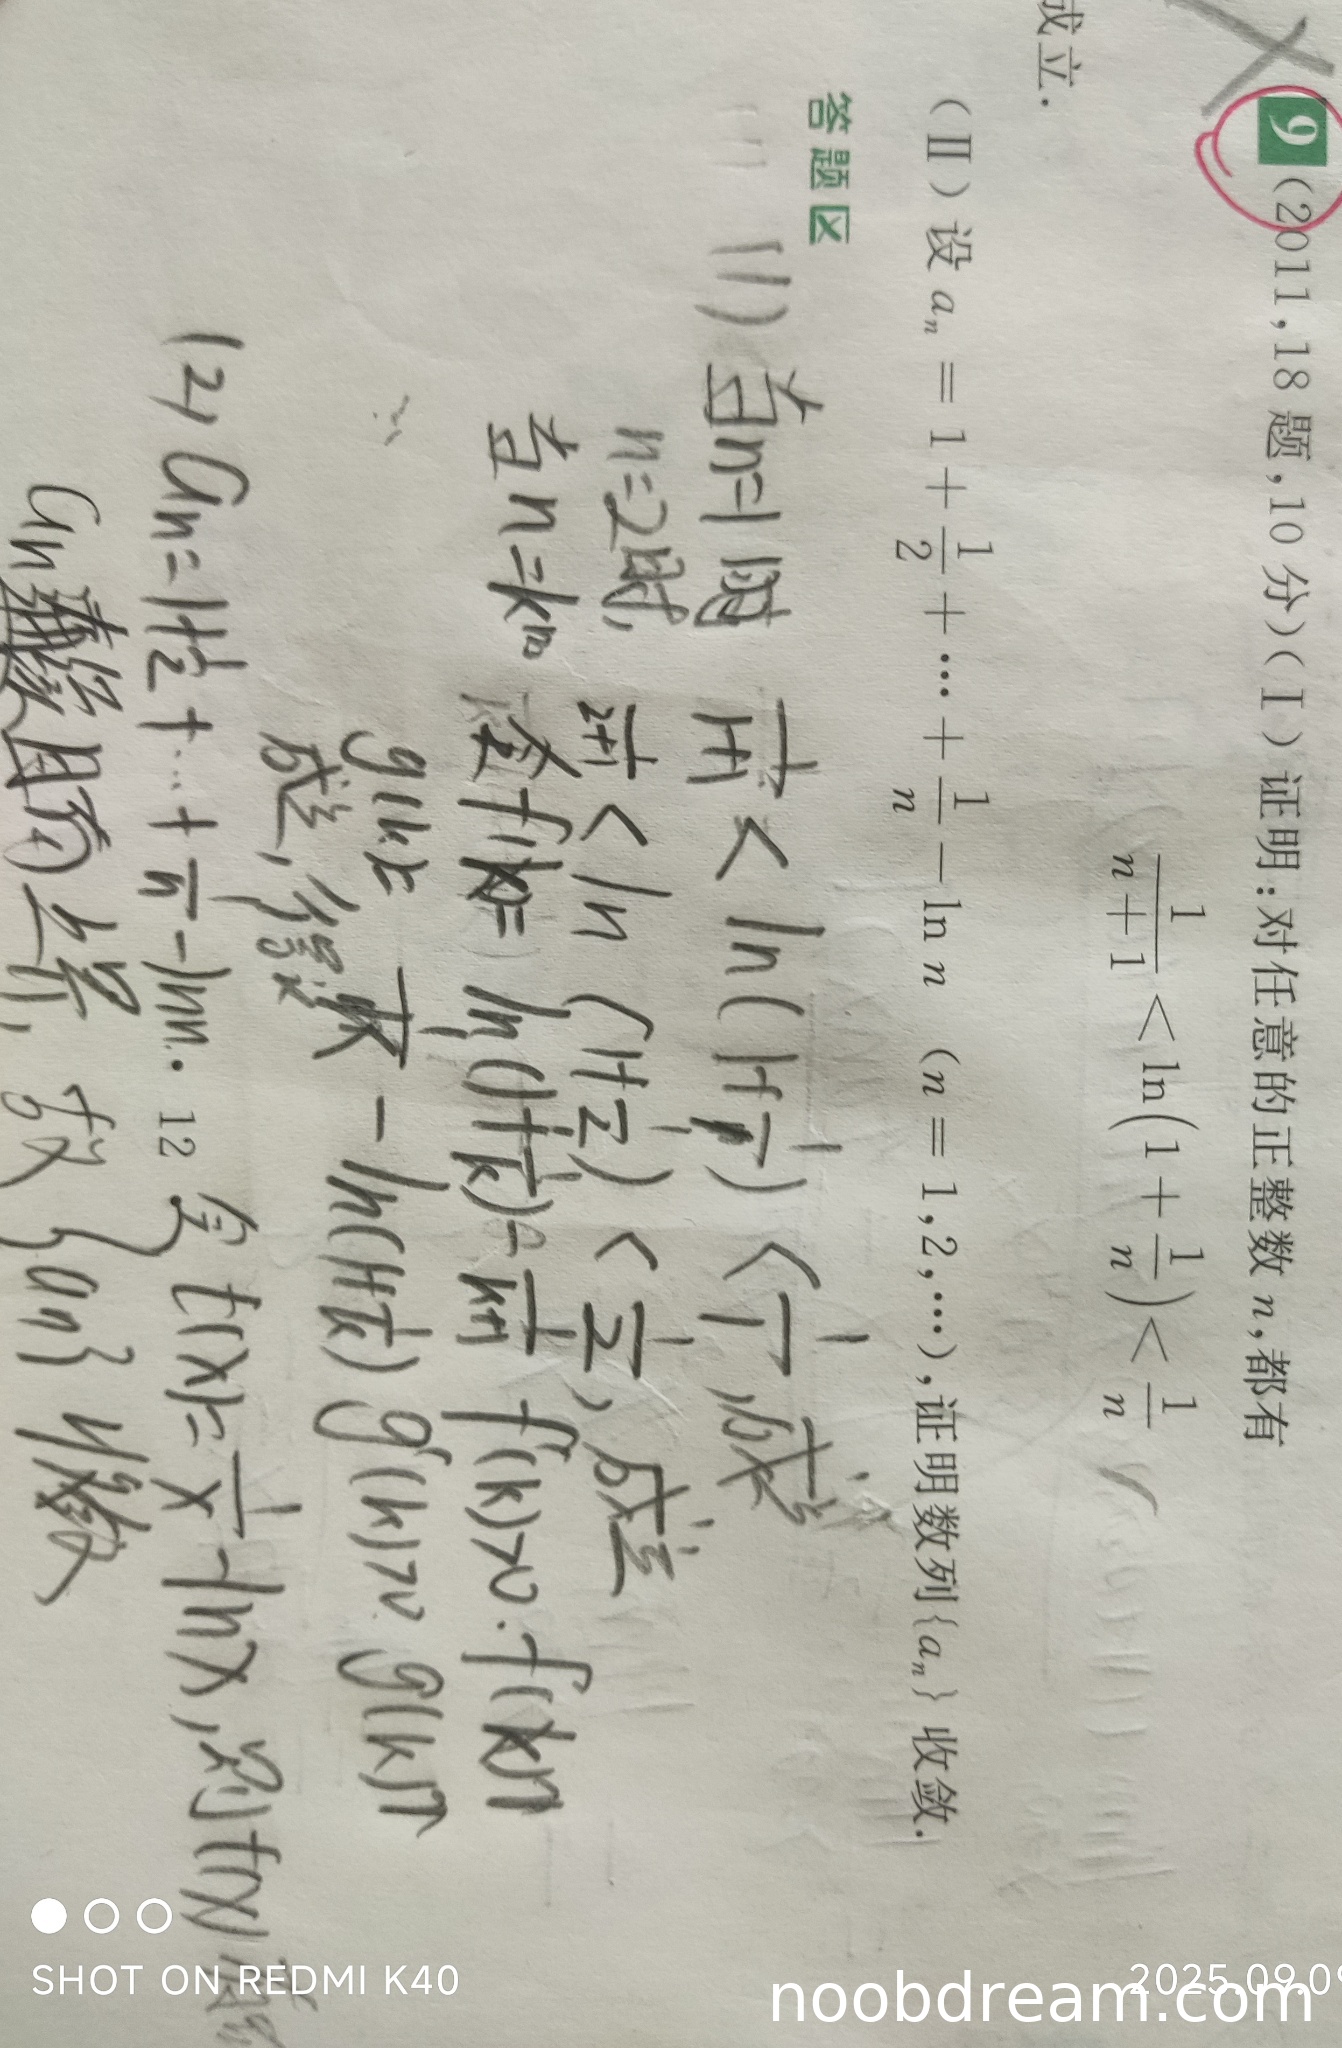 成立.
9 (2011,18题,10分)(Ⅰ)证明:对任意的正整数 n,都有
1/(n+1) < ln(1+1/n) < 1/n
(Ⅱ)设 aₙ = 1 + 1/2 + … + 1/n − ln n (n = 1,2,…),证明数列{aₙ}收敛.
答题区
(1) 当n=1时 1/(1+1) < ln(1+1/1) < 1/1,成立
n=2时, 1/(2+1) < ln(1+1/2) < 1/2,成立
当n=k时 令f(k)= ln(1+1/k) - 1/(k+1) f(k)>0. f(k)
g(k)= 1/k - ln(1+1/k) g(k)>0 g(k)↑
成立,
(2) an=1+1/2+…+1/n-lnn. 12 令f(x)=1/x-lnx,则f(x)
an 且有上界, 故{an}收敛
SHOT ON REDMI K40
2025.09.09
noobdream.com